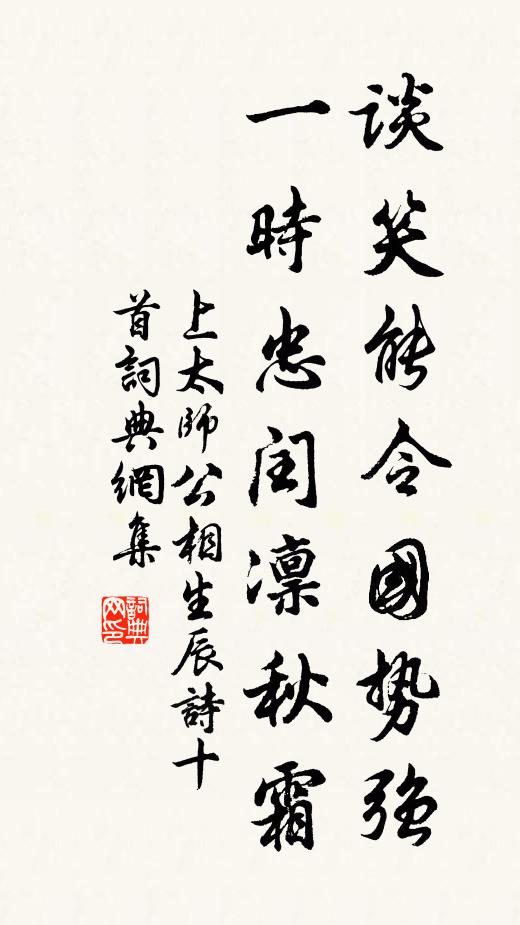 谈笑能令國势强
一時忠闰凛秋霜
上太師公相生辰詩十
首詞典網集
詞典网印